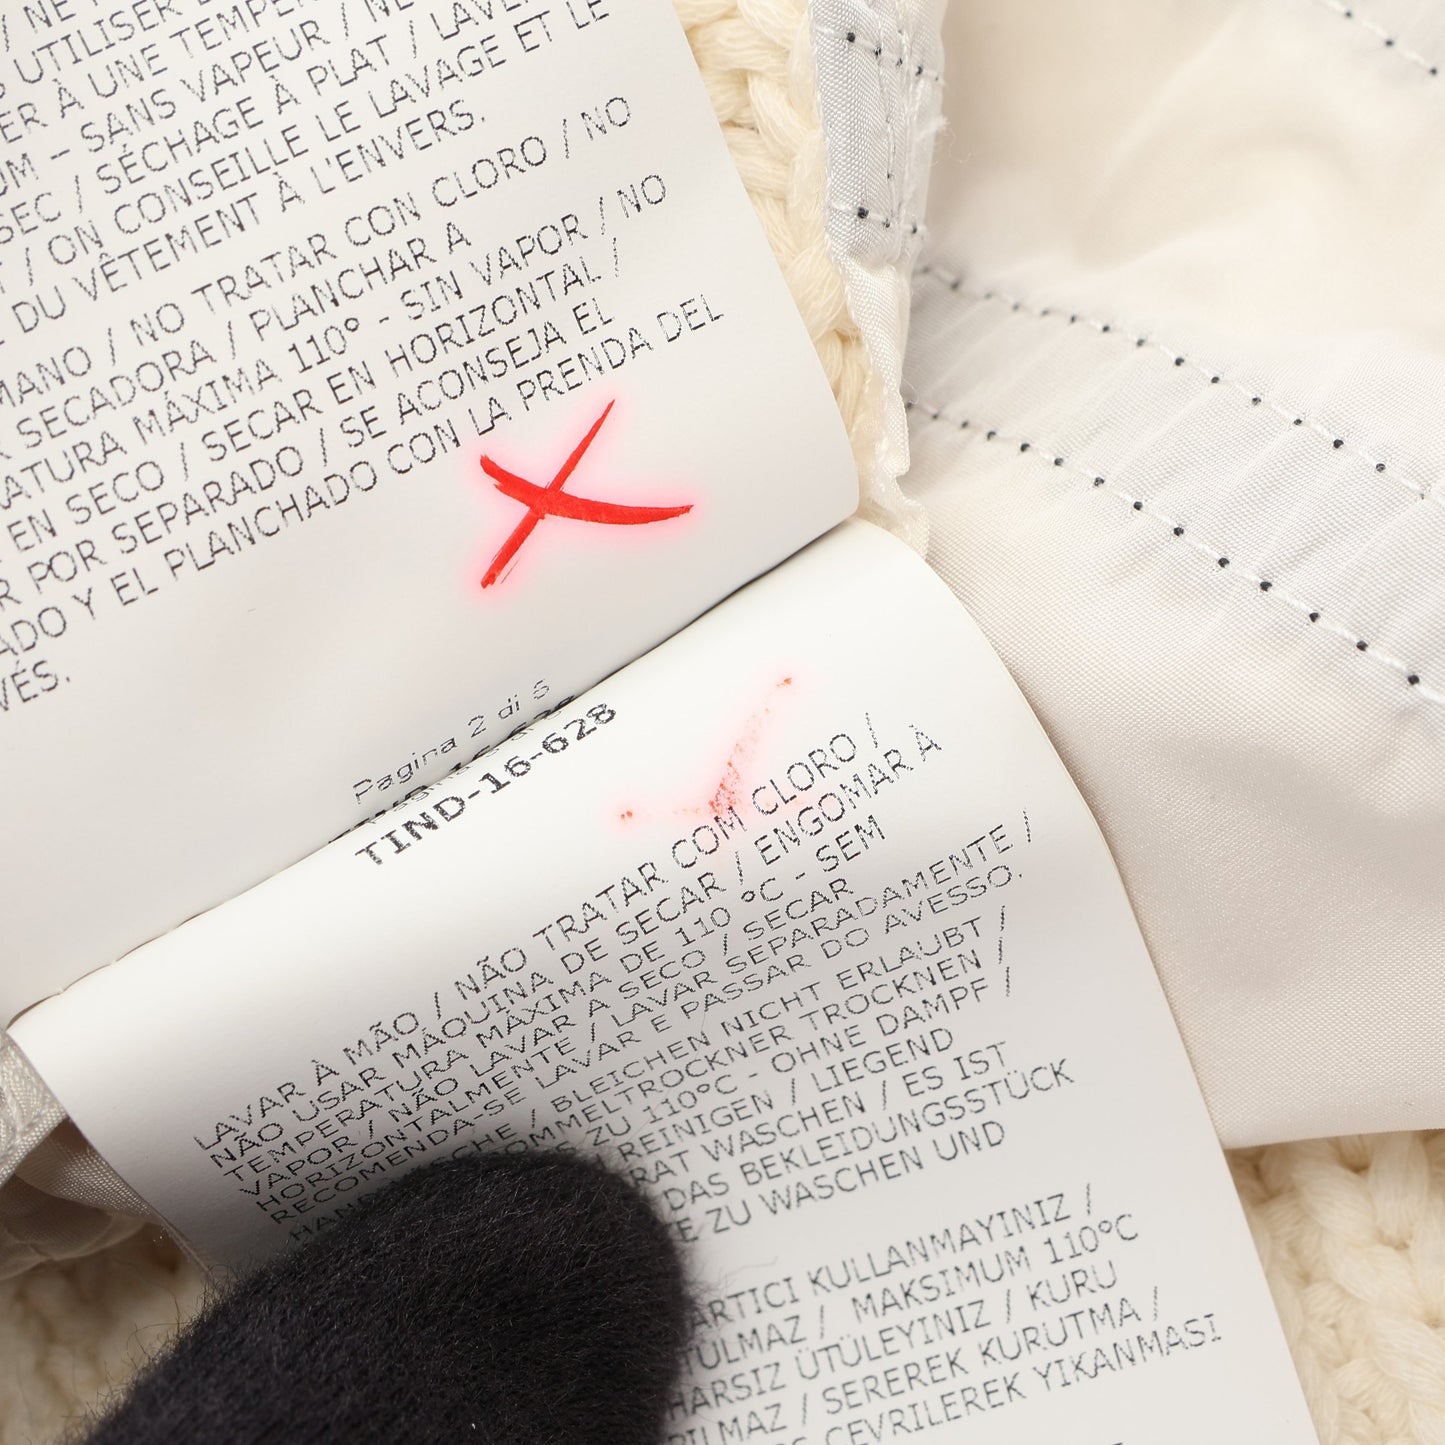 / NE
UTILISER
ER À UNE TEMPÉR
UM – SANS VAPEUR / NE
SEC / SÉCHAGE À PLAT / LAVER
/ ON CONSEILLE LE LAVAGE ET LE
DU VÊTEMENT À L'ENVERS.
MANO / NO TRATAR CON CLORO / NO
R SECADORA / PLANCHAR A
RATURA MÁXIMA 110° - SIN VAPOR / NO
EN SECO / SECAR EN HORIZONTAL /
R POR SEPARADO / SE ACONSEJA EL
ADO Y EL PLANCHADO CON LA PRENDA DEL
VÉS.
Pagina 2 di 6
TIND-16-628
LAVAR À MÃO / NÃO TRATAR COM CLORO /
NÃO USAR MÁQUINA DE SECAR / ENGOMAR À
TEMPERATURA MÁXIMA DE 110 °C - SEM
VAPOR / NÃO LAVAR A SECO / SECAR
HORIZONTALMENTE / LAVAR SEPARADAMENTE /
RECOMENDA-SE LAVAR E PASSAR DO AVESSO.
HAN SCHE / BLEICHEN NICHT ERLAUBT /
OMMELTROCKNER TROCKNEN /
S ZU 110°C - OHNE DAMPF /
REINIGEN / LIEGEND
RAT WASCHEN / ES IST
DAS BEKLEIDUNGSSTÜCK
E ZU WASCHEN UND
ARTICI KULLANMAYINIZ /
TULMAZ / MAKSIMUM 110°C
HARSIZ ÜTÜLEYINIZ / KURU
RILMAZ / SEREREK KURUTMA /
CEVRILEREK YIKANMASI